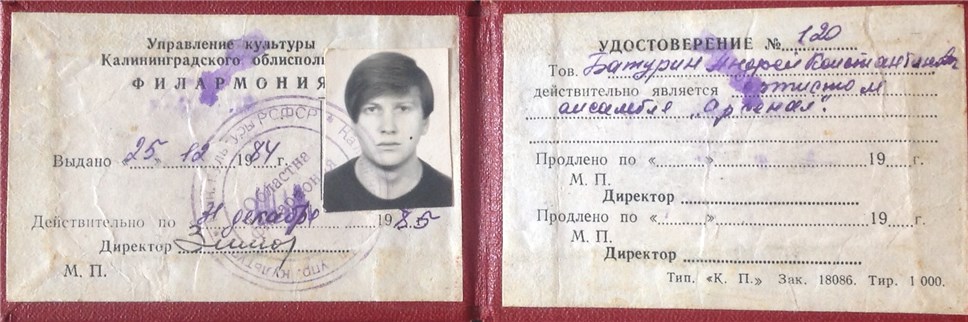 Управление культуры
Калининградского облисполк
ФИЛАРМОНИЯ
Выдано «25» 12 1984 г.
Действительно по 31 декабря 1985
Директор
М. П.
УДОСТОВЕРЕНИЕ № 120
Тов. Батурин Андрей Константинович
действительно является артистом
ансамбля „Арсенал“.
Продлено по «......» 19....г.
М. П.
Директор
Продлено по «......» 19....г.
М. П.
Директор
Тип. «К. П.» Зак. 18086. Тир. 1 000.